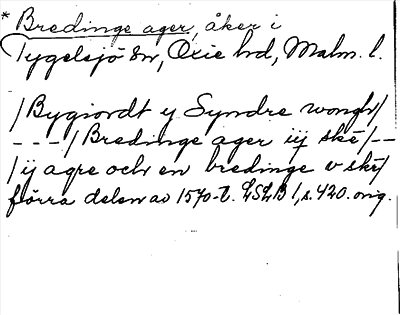 * Bredinge ager, åker i
Tygelsjö sn, Oxie hd, Malm. l.
/Bygiordt y Syndre wongh/
---/Bredinge ager iij ske/--
/ij agre och en bredinge v ske/
förra delen av 1570-t. LSLB 1, s. 420. orig.